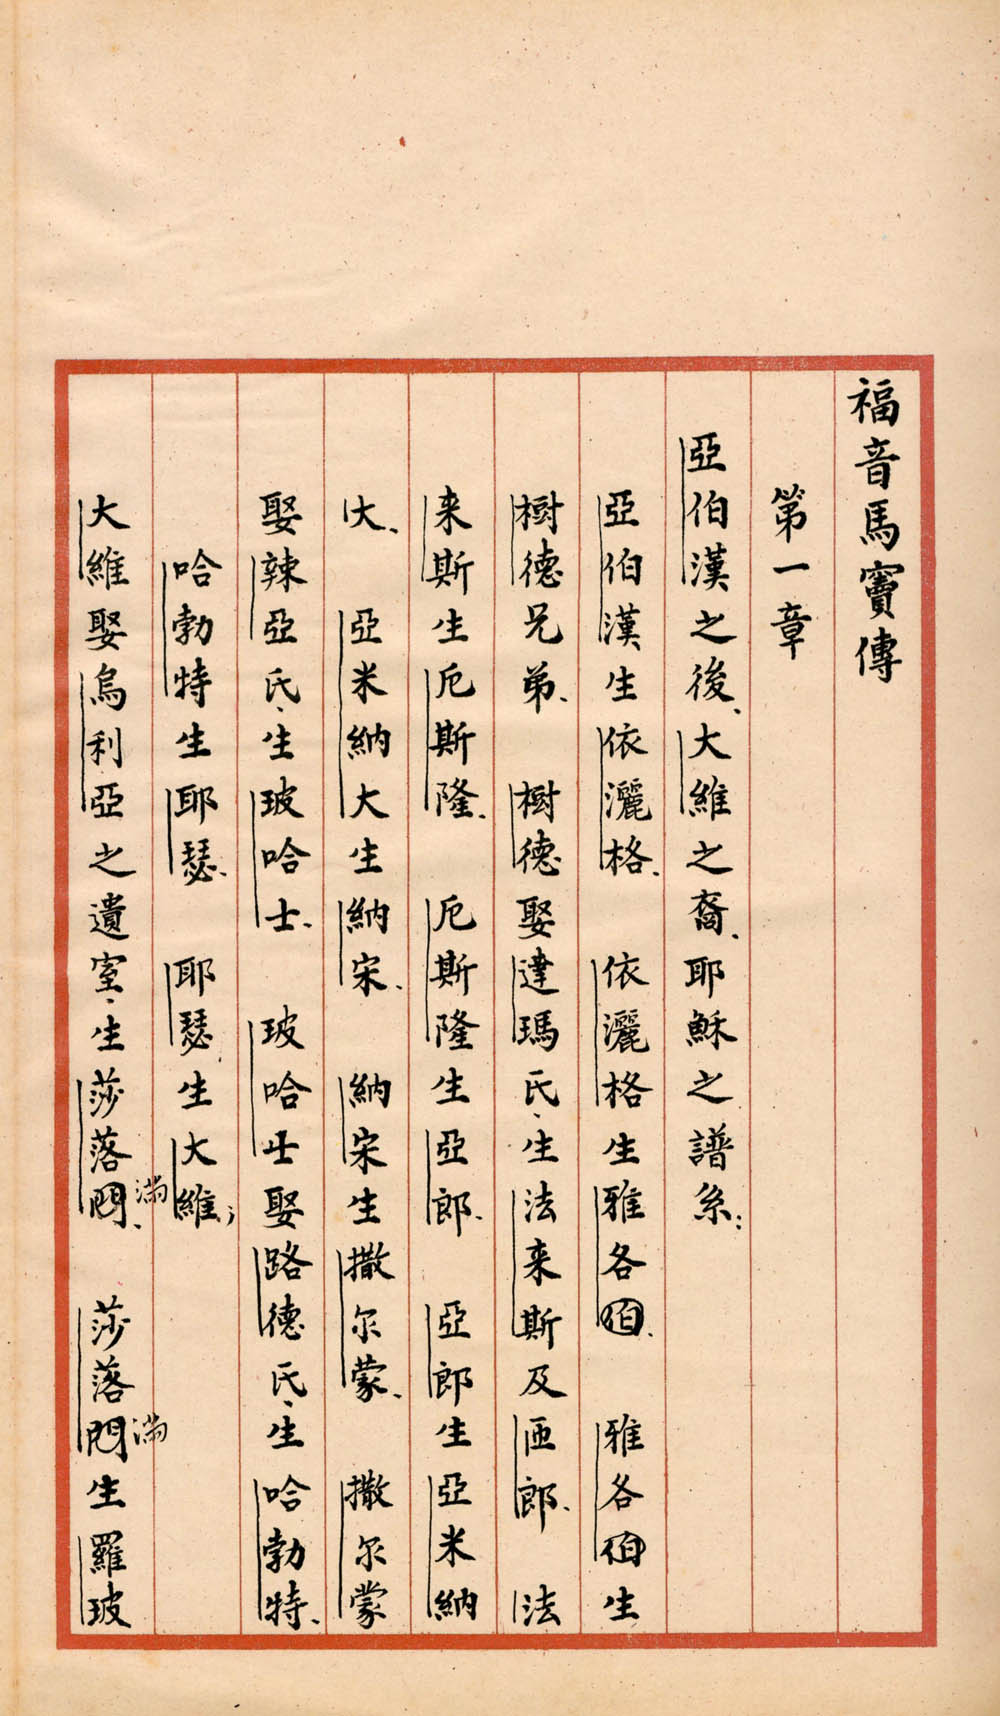 福音馬竇傳
第一章
亞伯漢之後、大維之裔、耶穌之譜系：
亞伯漢生依灑格、依灑格生雅各伯、雅各伯生
樹德兄弟、樹德娶達瑪氏、生法来斯及匝郎、法
来斯生厄斯隆、厄斯隆生亞郎、亞郎生亞米納
大、亞米納大生納宋、納宋生撒尔蒙、撒尔蒙
娶辣亞氏、生玻哈士、玻哈士娶路德氏、生哈勃特、
哈勃特生耶瑟、耶瑟生大維；
大維娶烏利亞之遺室、生莎落門滿、莎落門滿生羅玻